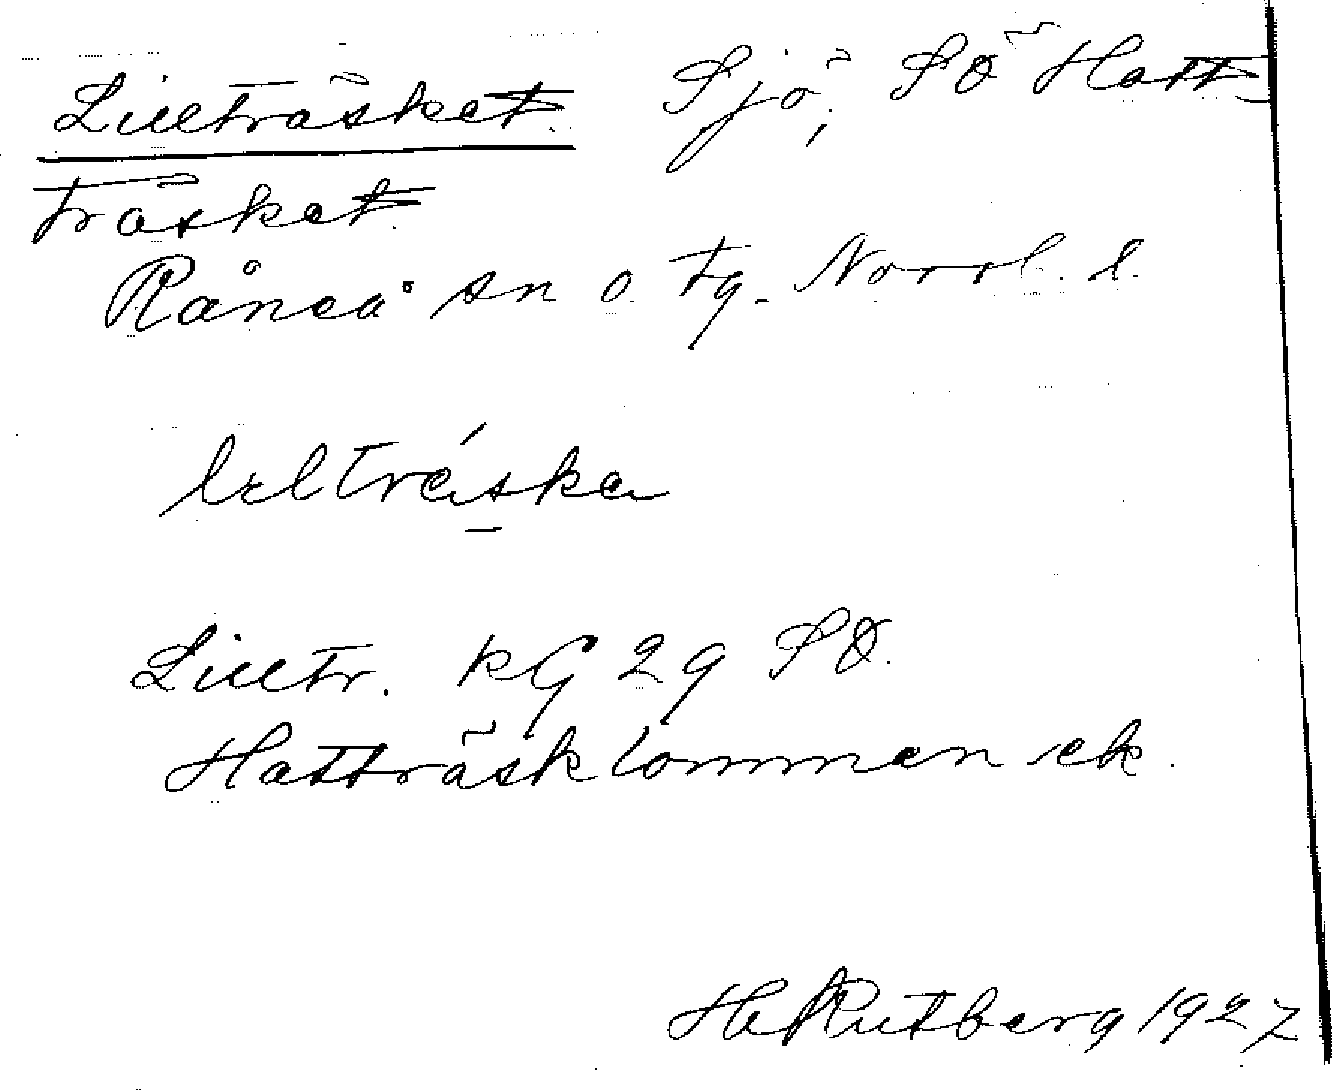 Lillträsket Sjö, SO Hatt-
träsket
Råneå sn o. tg. Norrb. l.
lɩlträ́ska
Lilltr. KG 29 SO.
Hatträsklommen ek.
H Rutberg 1927